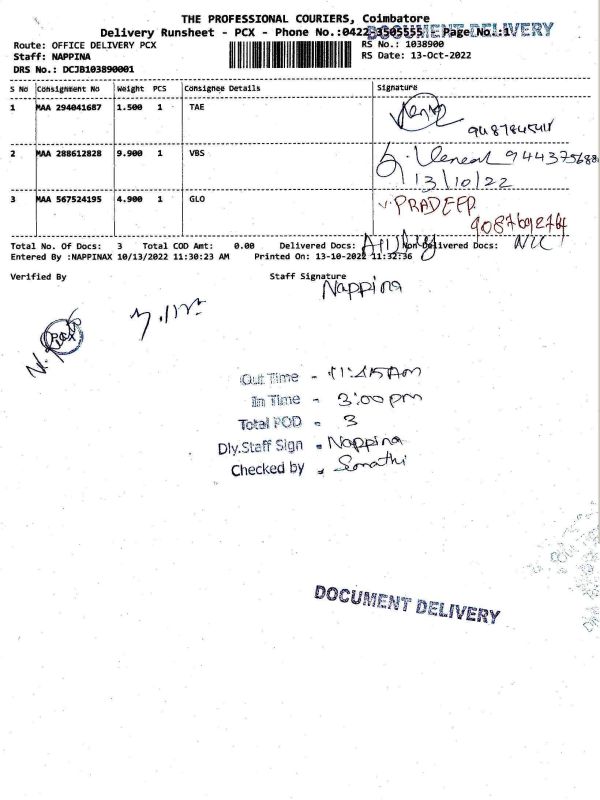 THE PROFESSIONAL COURIERS, Coimbatore
Delivery Runsheet - PCX - Phone No.:0422-3505555 Page No.:1
DOCUMENT DELIVERY
Route: OFFICE DELIVERY PCX RS No.: 1038900
Staff: NAPPINA RS Date: 13-Oct-2022
DRS No.: DCJB103890001
S No Consignment No Weight PCS Consignee Details Signature
1 MAA 294041687 1.500 1 TAE
2 MAA 288612828 9.900 1 VBS
13/10/22
3 MAA 567524195 4.900 1 GLO PRADEEP
Total No. Of Docs: 3 Total COD Amt: 0.00 Delivered Docs: Non-Delivered Docs: NIL
Entered By :NAPPINAX 10/13/2022 11:30:23 AM Printed On: 13-10-2022 11:32:36
Verified By Staff Signature
Nappina
PCX
Out Time - 11:45Am
In Time - 3:00pm
Total POD - 3
Dly.Staff Sign - Nappina
Checked by
DOCUMENT DELIVERY